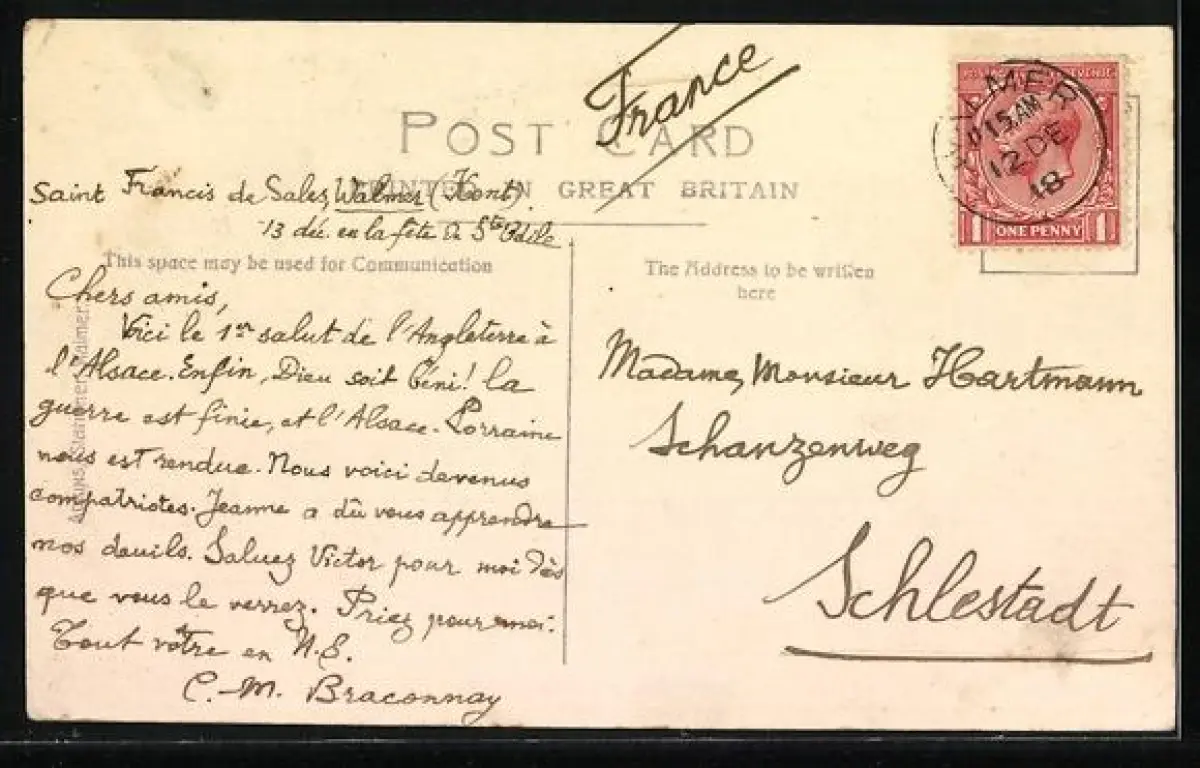 France
POST CARD
PRINTED IN GREAT BRITAIN
Saint Francis de Sales, Walmer (Kent)
13 déc. en la fête de Ste Odile
This space may be used for Communication
The Address to be written
here
Chers amis,
Voici le 1er salut de l'Angleterre à
l'Alsace. Enfin, Dieu soit béni! la
guerre est finie, et l'Alsace-Lorraine
nous est rendue. Nous voici devenus
compatriotes. Jeanne a dû vous apprendre
nos deuils. Saluez Victor pour moi dès
que vous le verrez. Priez pour moi.
Tout vôtre en N.S.
C.-M. Braconnay
Madame, Monsieur Hartmann
Schanzenweg
Schlestadt
WALMER
15 AM
12 DE
18
POSTAGE REVENUE
1 ONE PENNY 1
Walmer